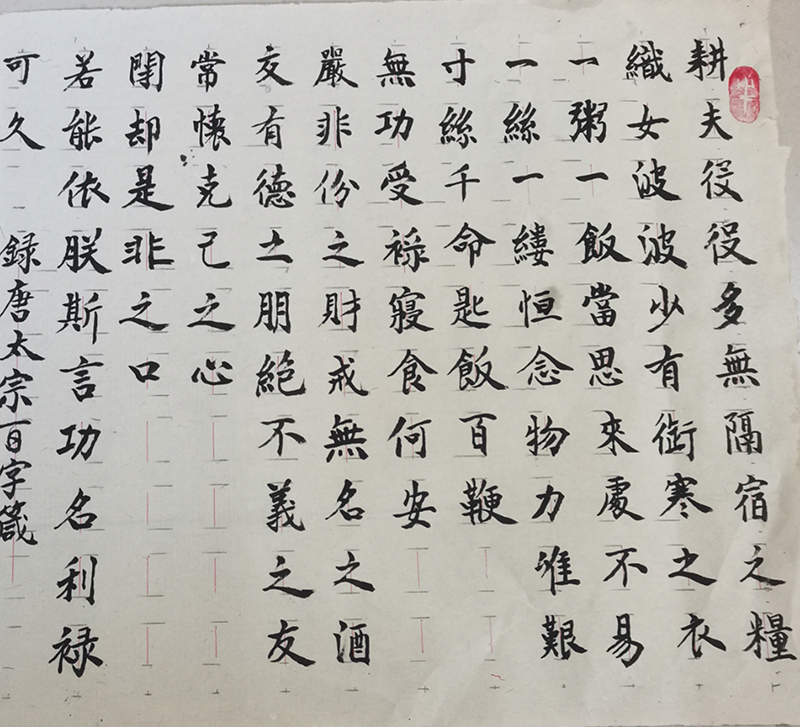 耕夫役役多無隔宿之糧
織女波波少有御寒之衣
一粥一飯當思來處不易
一絲一縷恒念物力唯艱
寸絲千命匙飯百鞭
無功受禄寢食何安
嚴非份之財戒無名之酒
交有德土朋絕不義之友
常懷克己之心
閉却是非之口
若能依朕斯言功名利禄
可久 録唐太宗百字箴